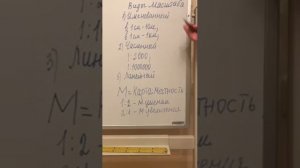 Виды Масштаба
1) Именованный
в 1 см - 1 км,
в 1 см - 5 км,
2) Численный
1:2000,
1:100000
3) Линейный
М = Карта:Местность
1:2 - М уменьш.
2:1 - М увеличения